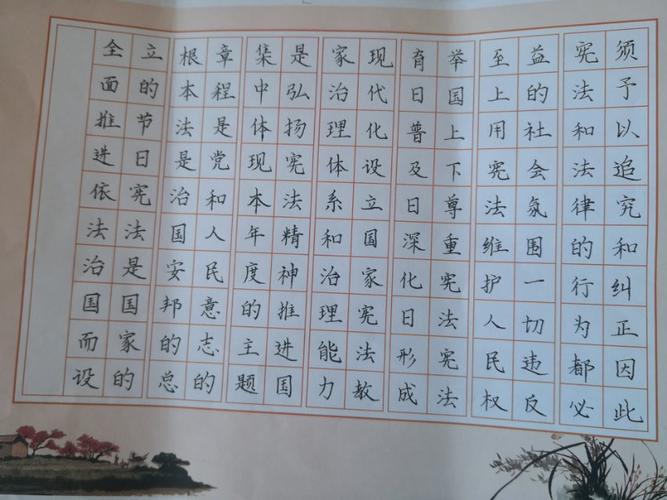 全面推进依法治国而设
立的节日宪法是国家的
根本法是治国安邦的总
章程是党和人民意志的
集中体现本年度的主题
是弘扬宪法精神推进国
家治理体系和治理能力
现代化设立国家宪法教
育日普及日深化日形成
举国上下尊重宪法宪法
至上用宪法维护人民权
益的社会氛围一切违反
宪法和法律的行为都必
须予以追究和纠正因此